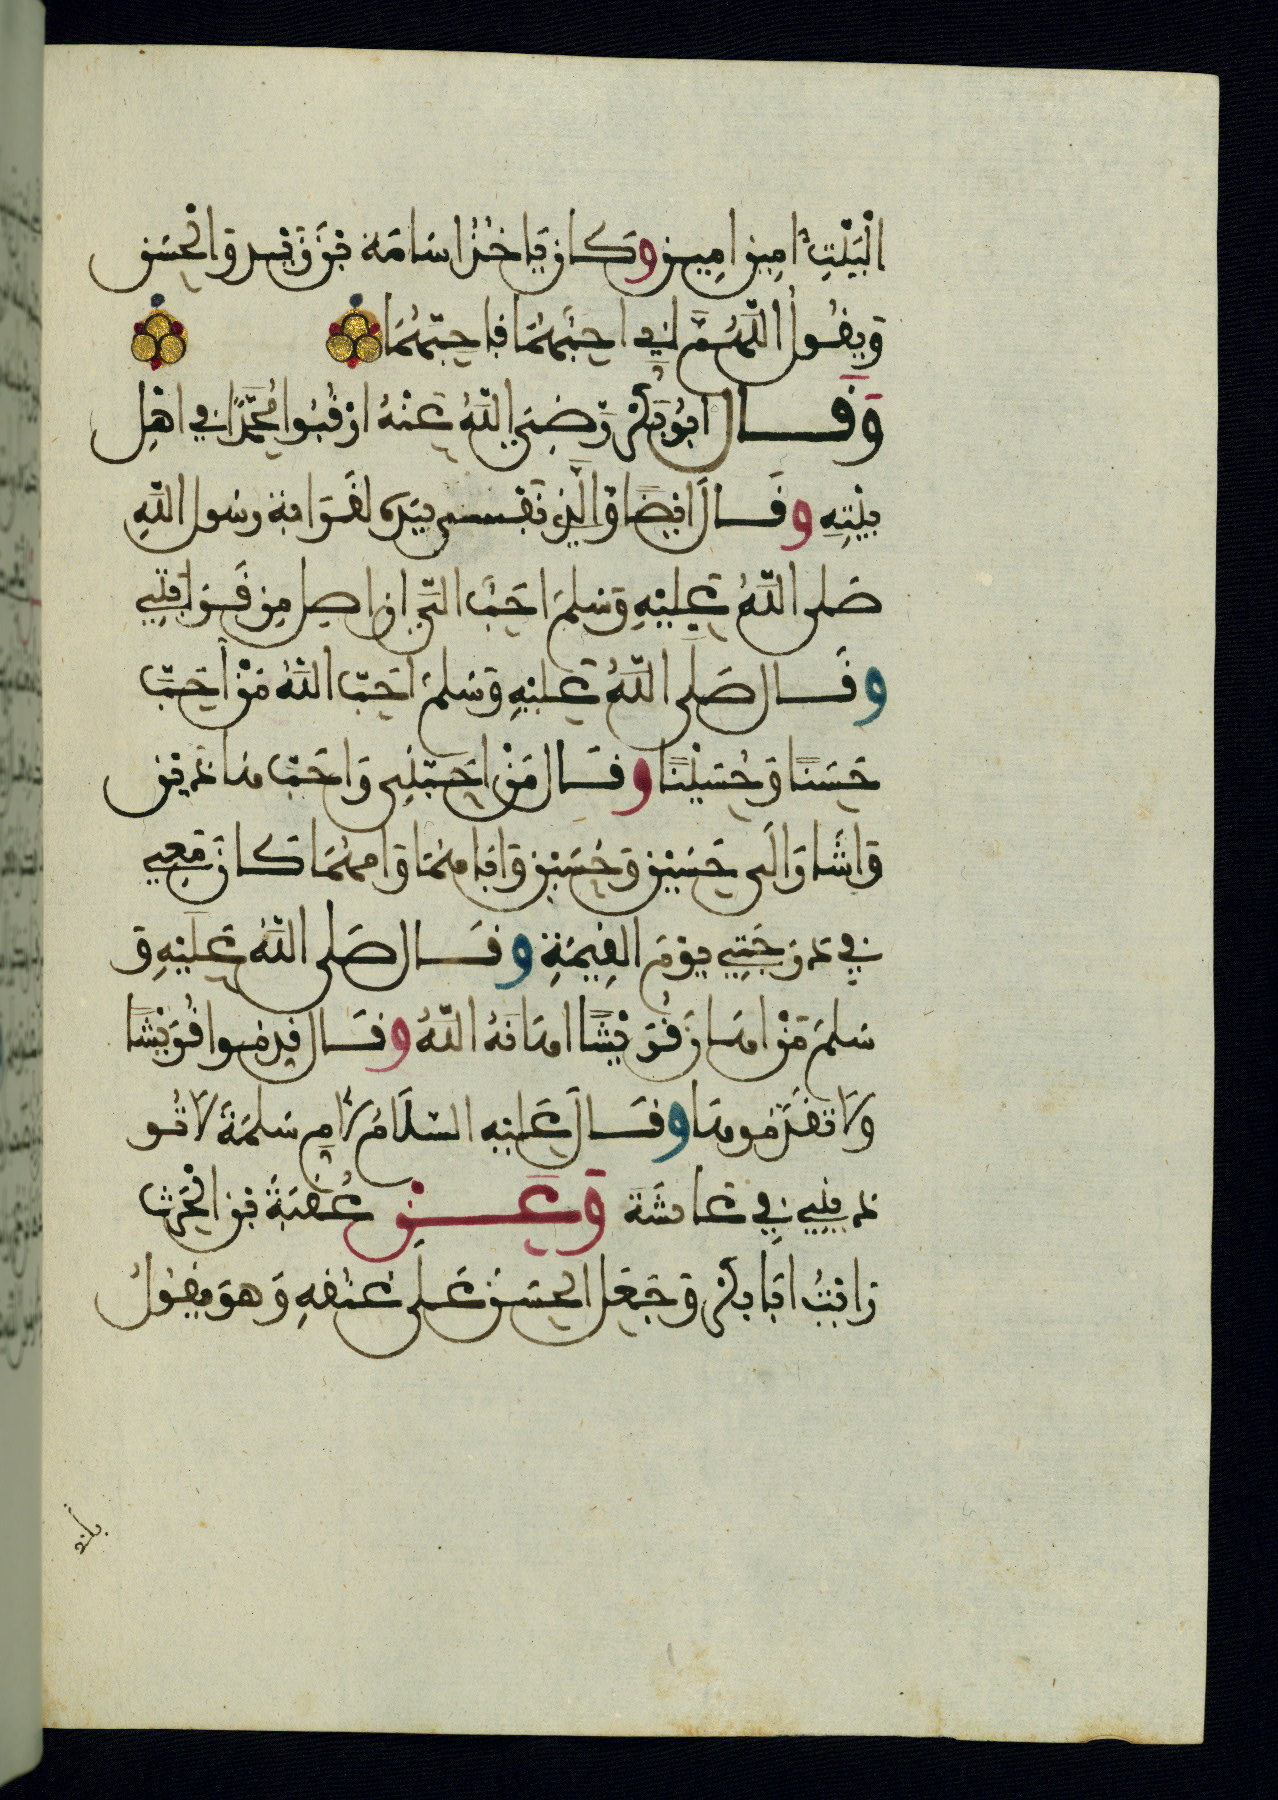 الْبَيْتِ امين امين وكان ياخُذُ اسامَة بْنَ زَيْدٍ وَالْحسَن
وَيقُولُ اللّهُمَّ إني احِبُّهُمَا فاحِبّهُمَا
وَقَال ابُو بَكْر رَّضِيَ اللّهُ عَنْهُ ارْقُبُوا مُحَمَّدًا في اهْلِ
بيْتِهِ وقَالَ ايْضًا وَالَّذِي نَفْسي بيَدِه لقَرَابة رسُول اللّهِ
صَلى اللّهُ عَليْهِ وَسَلمَ احَبُّ الَيَّ ان اصِل مِن قَرَابَتِي
وقَال صَلى اللّهُ عَليْهِ وَسَلمَ احَبّ اللهُ مَنْ احَبّ
حَسَنًا وَحُسَيْنًا وقَال مَنْ احَبّنِي وَاحَبّ هذَيْن
وَاشَار الَى حَسَن وَحُسَيْن وَابَاهمَا وَامهُمَا كَانَ مَعِي
في دَرَجَتِي يوْمَ القِيمَةِ وقَال صَلى اللّهُ عَلَيْهِ وَ
سَلمَ مَنْ اهَانَ قُرَيْشًا اهَانَهُ اللّهُ وقَال قدِمُوا قُرَيْشًا
ولَا تقَدَّمُوهَا وقَالَ عَليْهِ السّلَامُ لأم سَلمَةَ لا تُو
ذيني في عَائشَةَ وَعَنْ عُقْبَةَ بْن الْحَرث
رَايْتُ ابَا بكْر وَجَعَل الحسَنَ عَلى عُنُقِهِ وَهوَ يقُولُ
بأبي